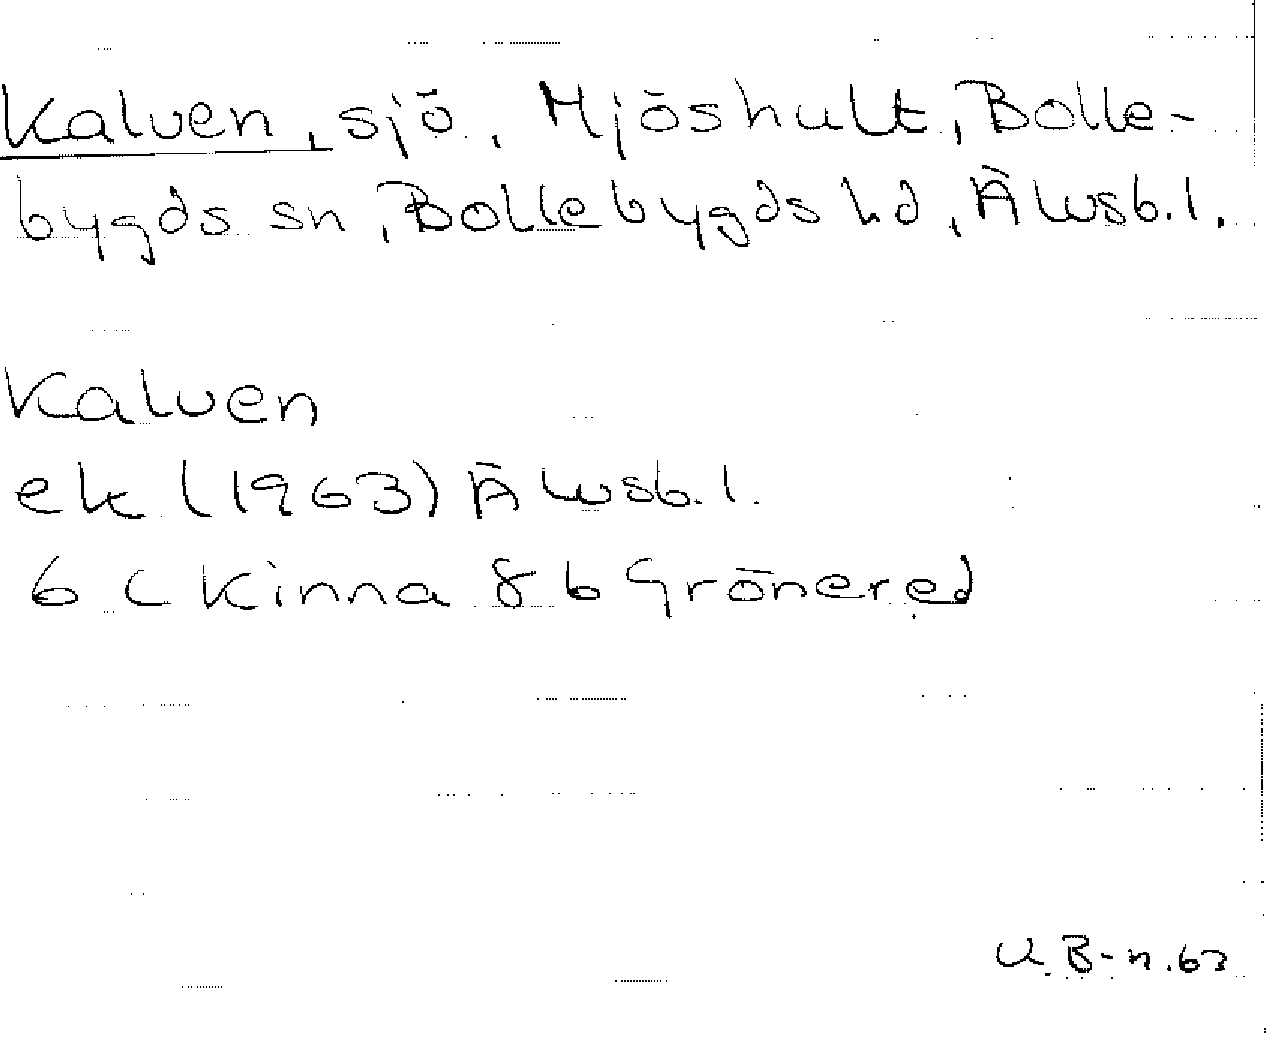 Kalven, sjö, Mjöshult, Bolle-
bygds sn, Bollebygds hd, Älvsb. l.
Kalven
ek (1963) Älvsb. l.
6 C Kinna 8 b Grönered
U. B-n. 63